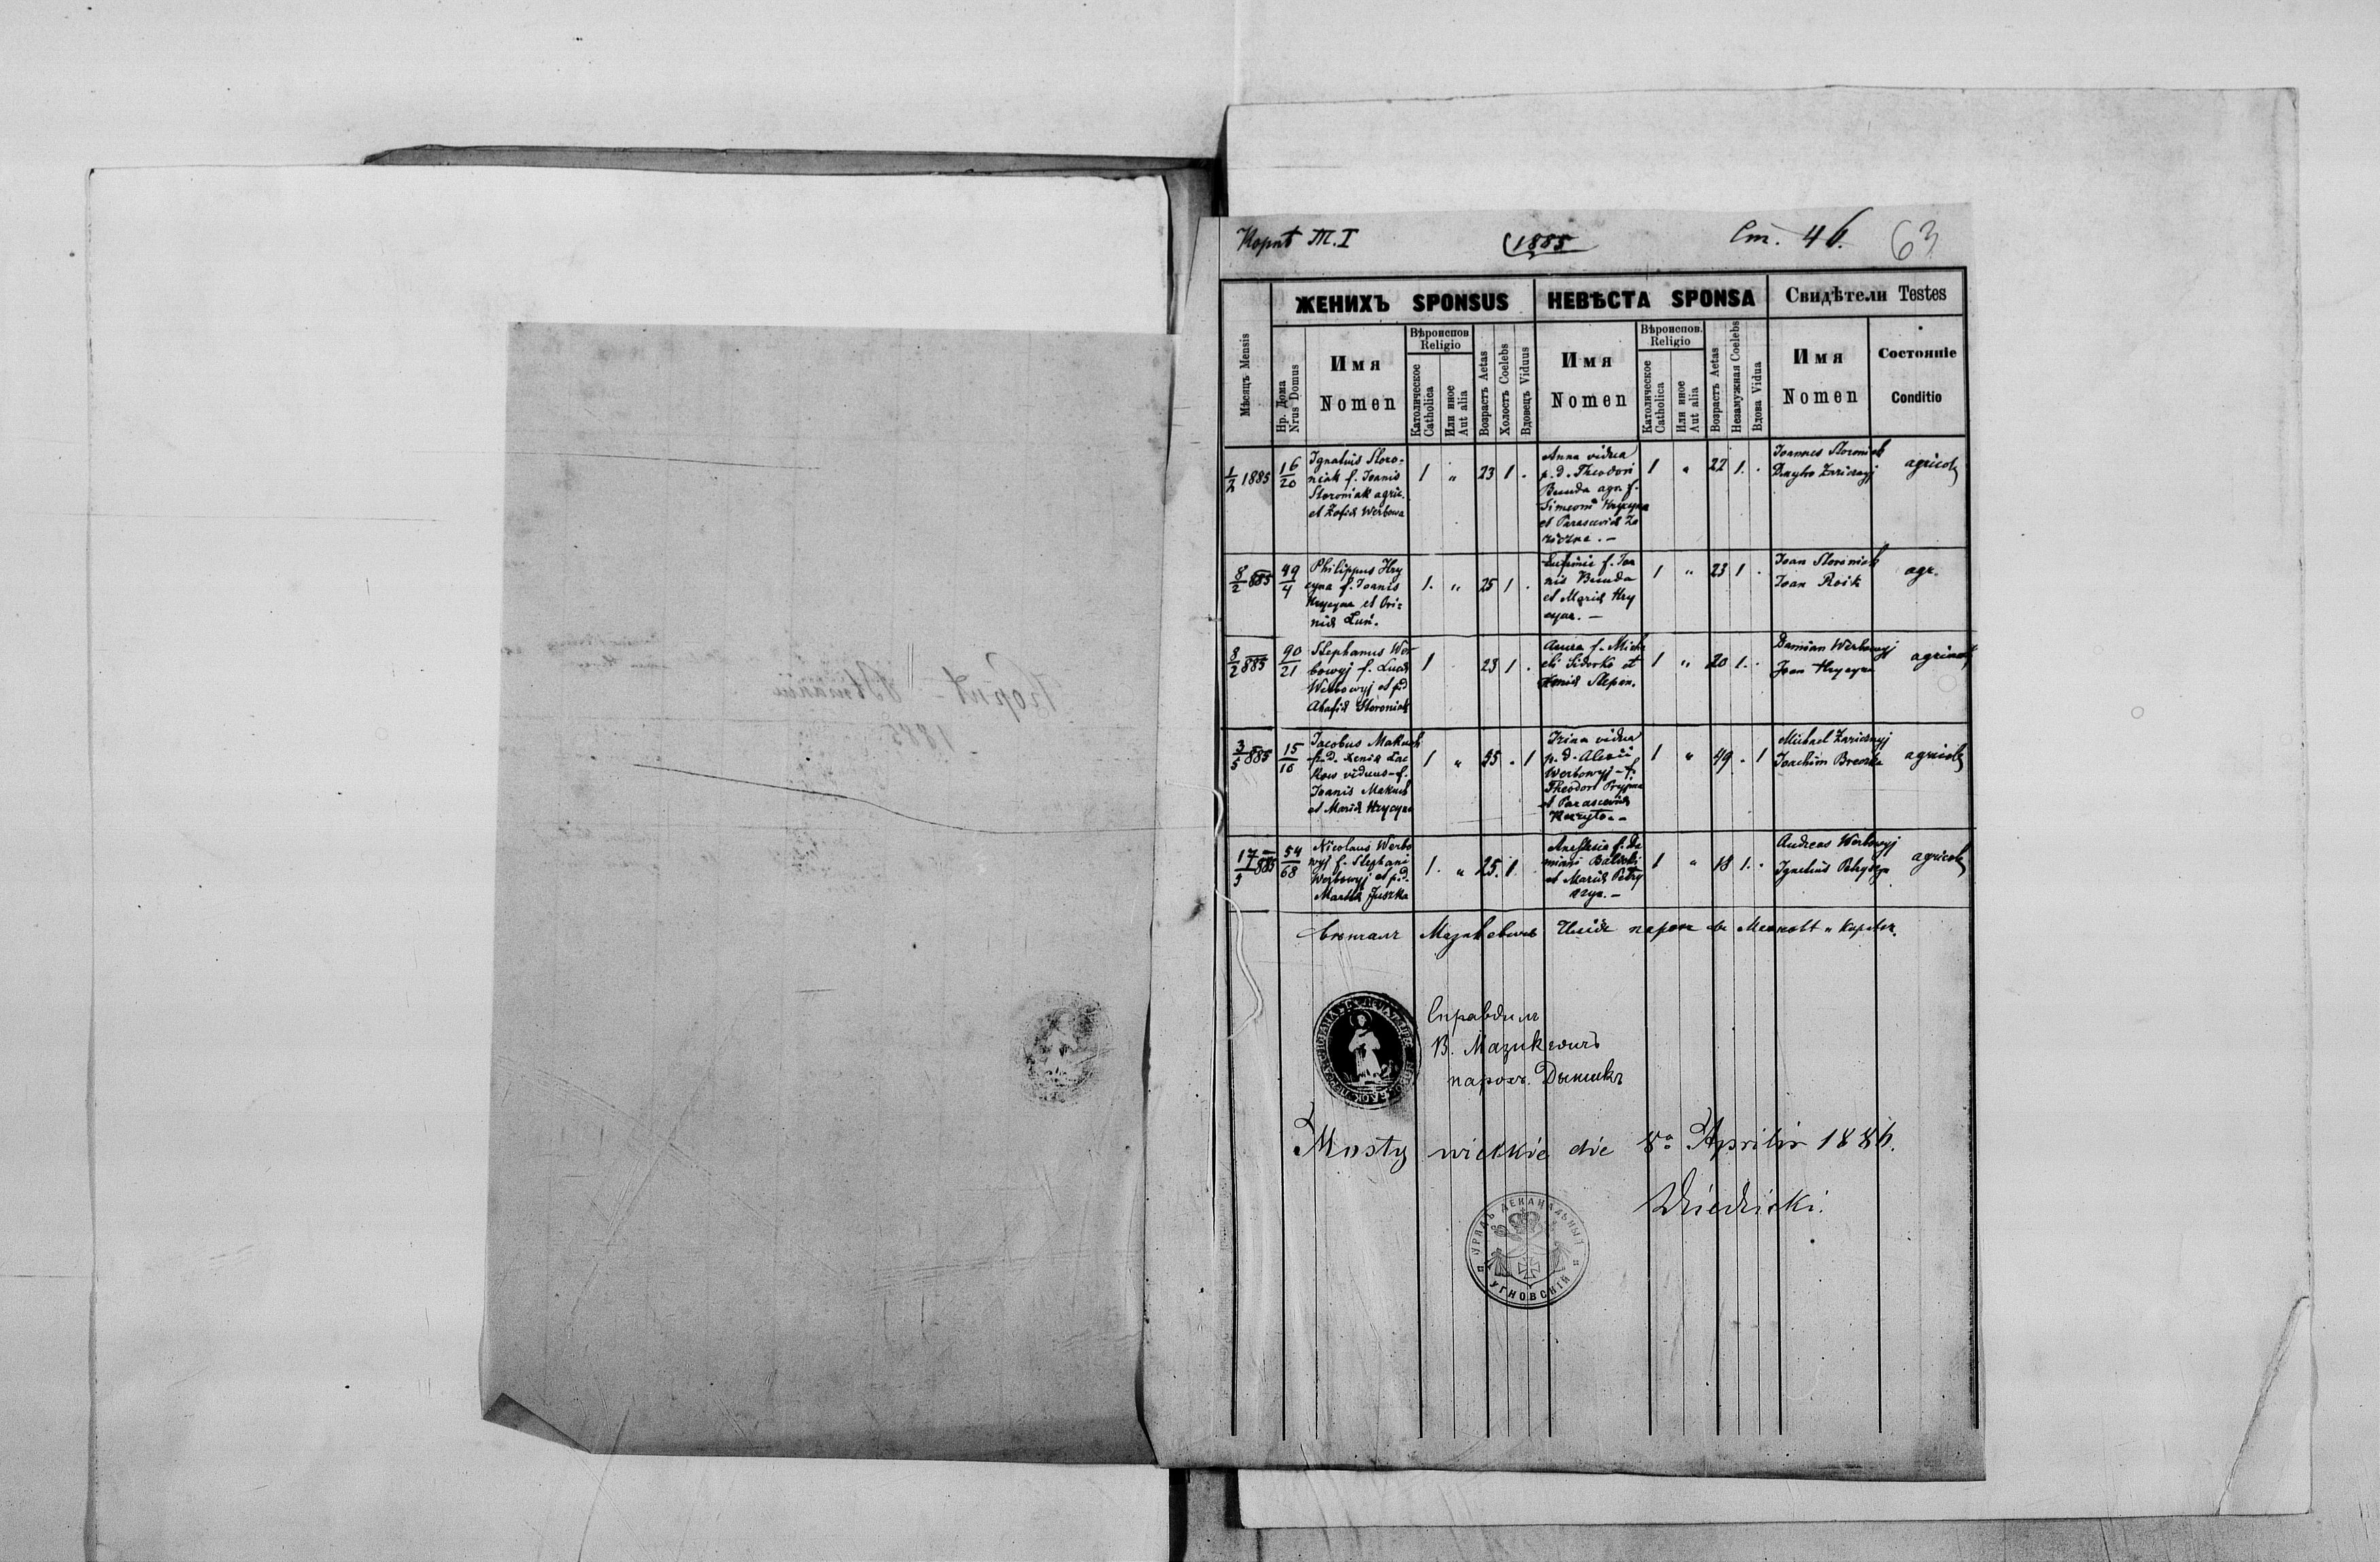 Корнѣ Т.I
1885
Ст. 46.
63
ЖЕНИХЪ SPONSUS
НЕВѢСТА SPONSA
Свидѣтели Testes
Мѣсяцъ Mensis
Нр. Дома
Nrus Domus
Имя
Nomen
Вѣроиспов
Religio
Католическое
Catholica
Или иное
Aut alia
Возрастъ Aetas
Холостъ Coelebs
Вдовецъ Viduus
Имя
Nomen
Вѣроиспов.
Religio
Католическое
Catholica
Или иное
Aut alia
Возрастъ Aetas
Незамужная Coelebs
Вдова Vidua
Имя
Nomen
Состоянiе
Conditio
1/2 1885
16/20
Ignatius Storo-
niak f. Ioannis
Storoniak agric.
et Zofia Werbowa
1 " 23 1 .
Anna vidua
p. d. Theodori
Bunda agr. f.
Simeoni Hrycyna
et Parascevia Za
riczna. -
1 " 22 1 .
Ioannes Storoniak
Dmytro Zaricznyj
agricolae
8/2 885
49/4
Philippus Hry
cyna f. Ioannis
Hrycyna et Ori-
nia Luń.
1. " 25 1 .
Eufimia f. Ioa
nis Bunda
et Maria Hry
cyna. -
1 " 23 1 .
Ioan Storoniak
Ioan Roik
agr.
8/2 885
90/21
Stephanus Wer
bowyj f. Luca
Werbowyj et p.d
Ahafia Storoniak
1 23 1 .
Anna f. Micha
eli Sidorko et
Xenia Stepan.
1 " 20 1 .
Damian Werbowyj
Ioan Hrycyna
agricolae
3/5 885
15/10
Jacobus Makuch
p.d. Xenia Lac
kow viduus - f.
Ioannis Makuch
et Maria Hrycyna
1 " 25 . 1
Irina vidua
p. d. Alexii
Werbowyj - f.
Theodori Pryjma
et Parascevia
Koryto. -
1 " 49 . 1
Michael Zaricznyj
Joachim
agricolae
17/5 885
54/68
Nicolaus Werbo
wyj f. Stephani
Werbowyj et p.d.
Martha Juszka
1. " 25. 1
Anastasia f. Da
miani
et Maria Petry
czyn. -
1 " 18 1. .
Andreas Werbowyj
Ignatius Petryczyn
agricolae
Вѣнчалъ Мазикевичъ парохъ
Справдилъ
В. Мазикевичъ
парохъ.
Mosty wielkie die 8a Aprilis 1886.
УРЯДЪ ДЕКАНАЛЬНЫЙ
УГНОВСКIЙ